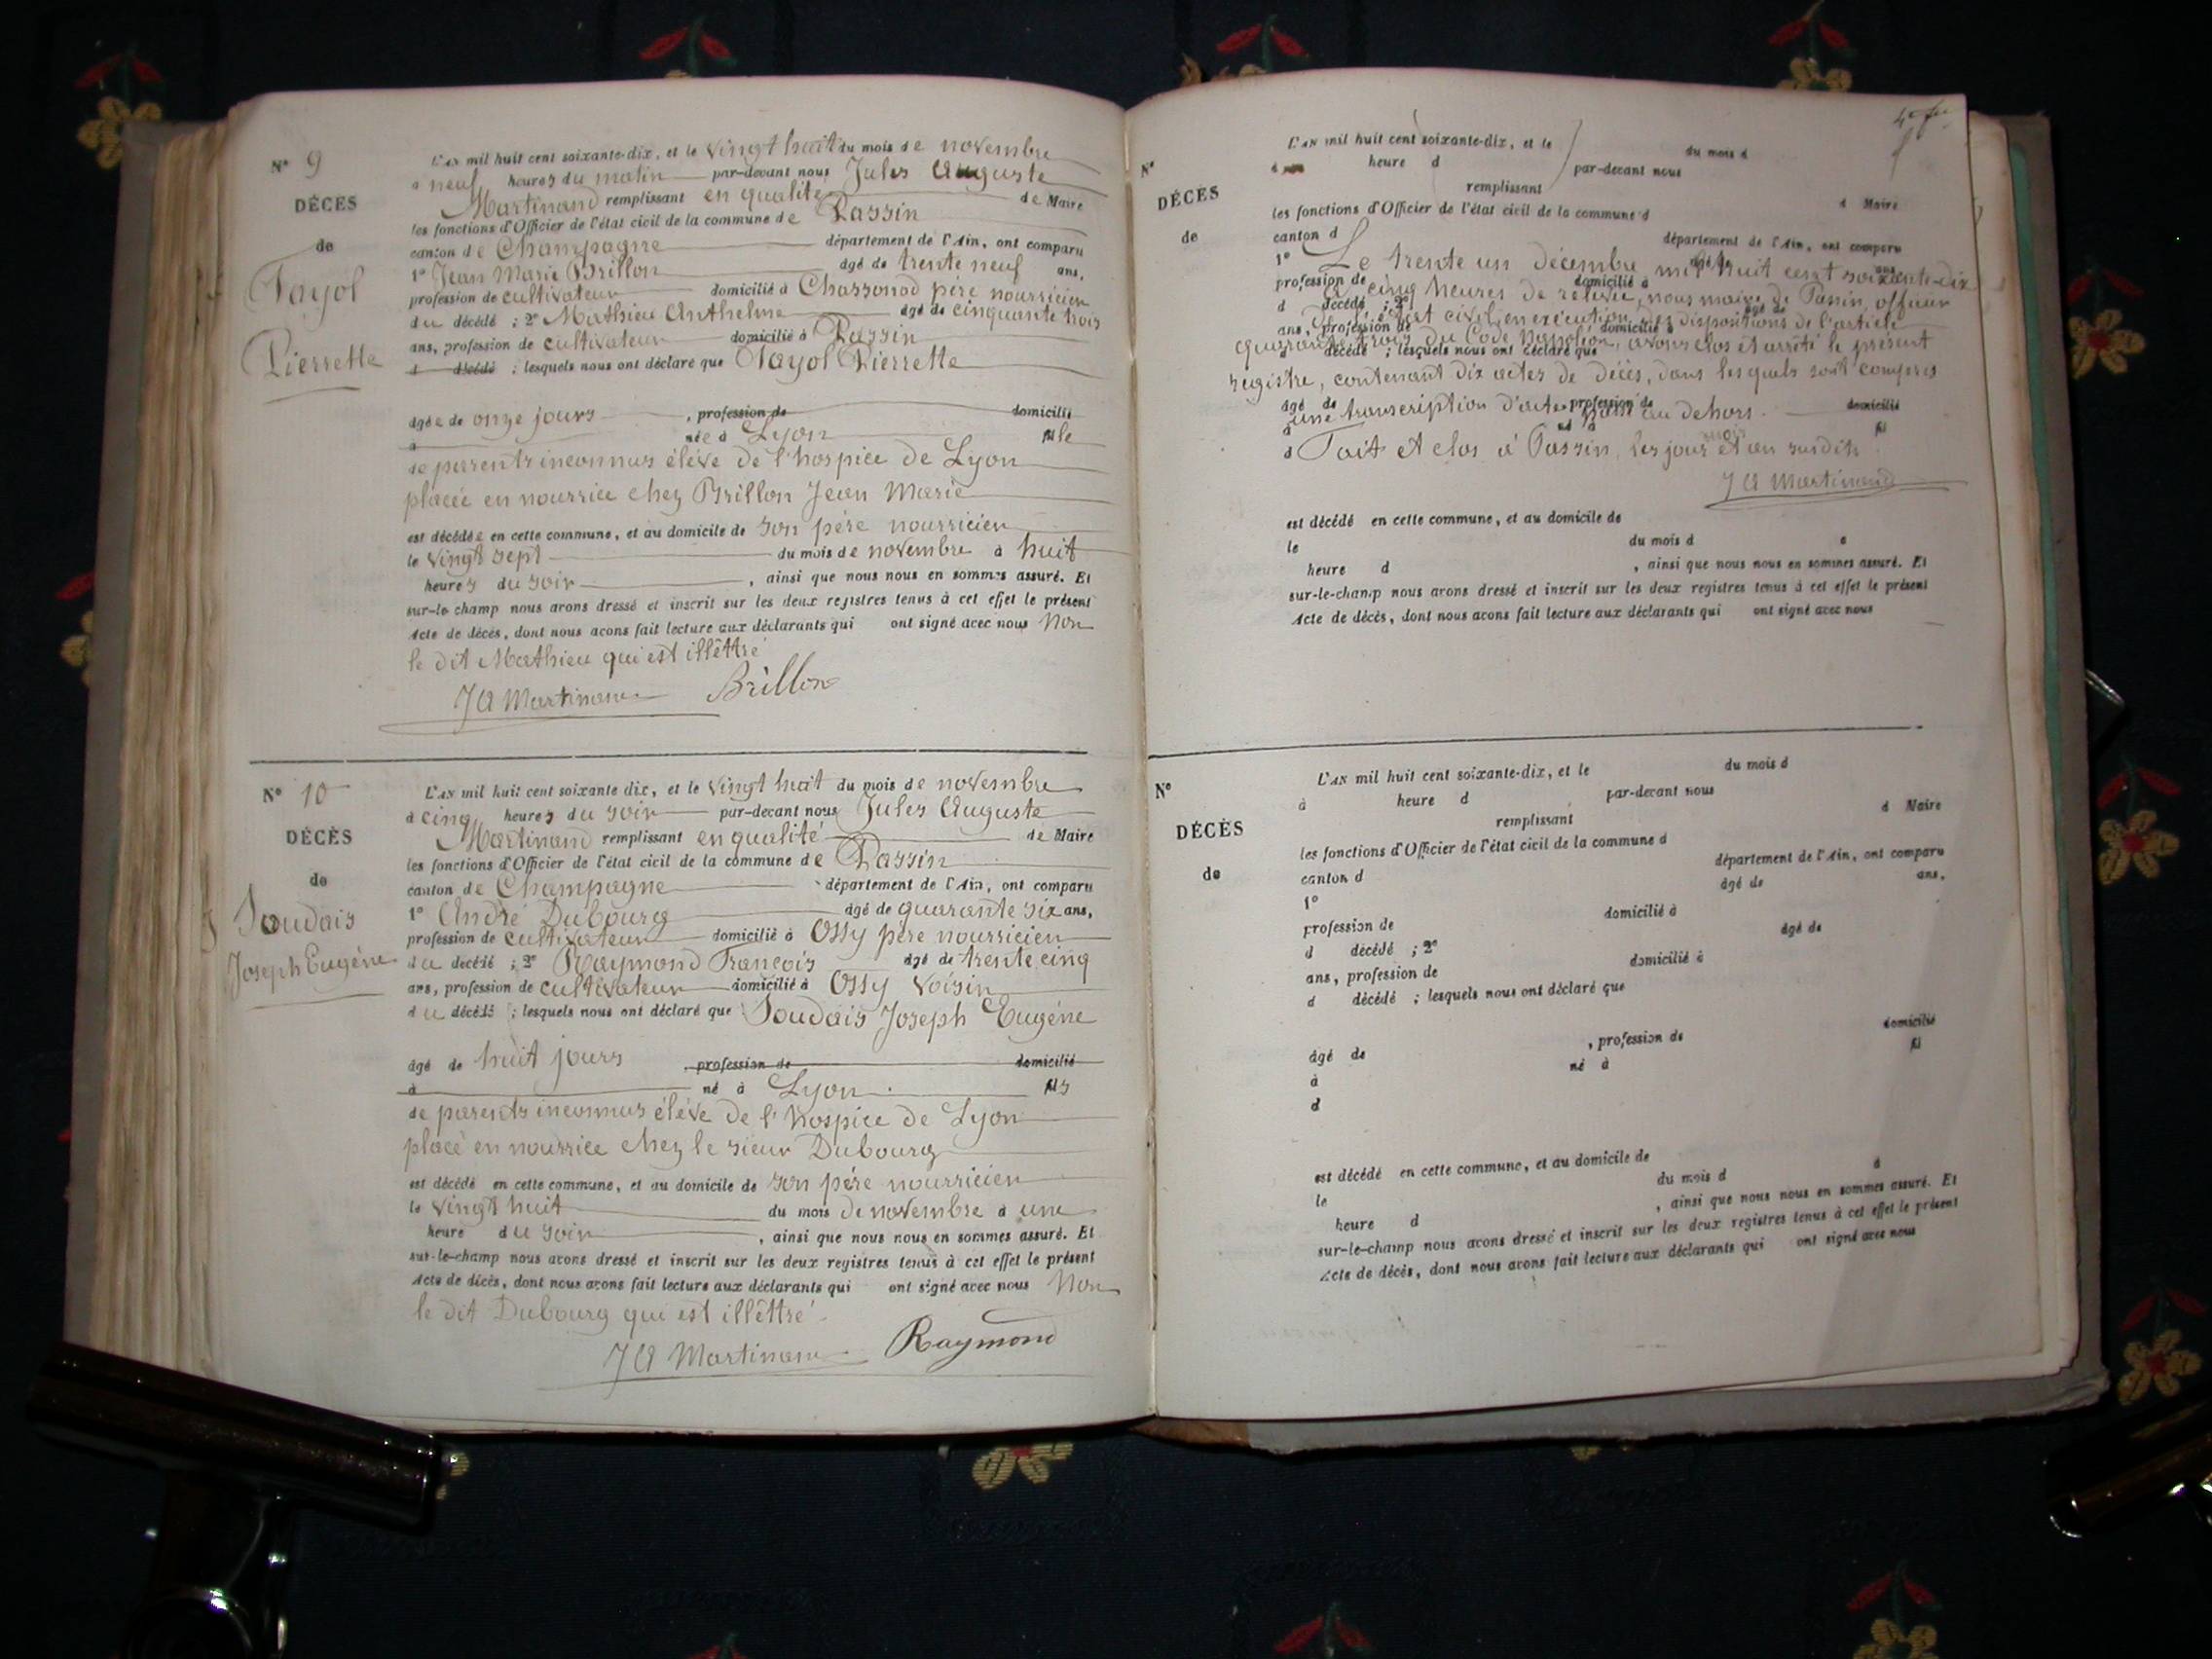 N° 9
DÉCÈS
de
Fayol
Pierrette
L'AN mil huit cent soixante-dix, et le vingt huit du mois de novembre
à neuf heures du matin par-devant nous Jules Auguste
Martinand remplissant en qualité de Maire
les fonctions d'Officier de l'état civil de la commune de Passin
canton de Champagne département de l'Ain, ont comparu
1° Jean Marie Brillon âgé de trente neuf ans,
profession de cultivateur domicilié à Chassonod père nourricien
du décédé ; 2° Mathieu Anthelme âgé de cinquante trois
ans, profession de cultivateur domicilié à Passin
d décédé ; lesquels nous ont déclaré que Fayol Pierrette
âgée de onze jours , profession de domicilié
à née à Lyon fille
de parents inconnus élève de l'hospice de Lyon
placée en nourrice chez Brillon Jean Marie
est décédée en cette commune, et au domicile de son père nourricien
le vingt sept du mois de novembre à huit
heures du soir , ainsi que nous nous en sommes assuré. Et
sur-le-champ nous avons dressé et inscrit sur les deux registres tenus à cet effet le présent
Acte de décès, dont nous avons fait lecture aux déclarants qui ont signé avec nous Non
le dit Mathieu qui est illêttré
JA Martinand Brillon
N° 10
DÉCÈS
de
Joudais
Joseph Eugène
L'AN mil huit cent soixante dix, et le vingt huit du mois de novembre
à cinq heures du soir par-devant nous Jules Auguste
Martinand remplissant en qualité de Maire
les fonctions d'Officier de l'état civil de la commune de Passin
canton de Champagne département de l'Ain, ont comparu
1° André Dubourg âgé de quarante six ans,
profession de cultivateur domicilié à Ossy père nourricien
du décédé ; 2° Raymond François âgé de trente cinq
ans, profession de cultivateur domicilié à Ossy voisin
du décédé ; lesquels nous ont déclaré que Joudais Joseph Eugène
âgé de huit jours , profession de domicilié
à né à Lyon . fils
de parents inconnus élève de l'hospice de Lyon
placé en nourrice chez le sieur Dubourg
est décédé en cette commune, et au domicile de son père nourricien
le vingt huit du mois de novembre à une
heure du soir , ainsi que nous nous en sommes assuré. Et
sur-le-champ nous avons dressé et inscrit sur les deux registres tenus à cet effet le présent
Acte de décès, dont nous avons fait lecture aux déclarants qui ont signé avec nous Non
le dit Dubourg qui est illêttré
JA Martinand Raymond
N°
DÉCÈS
de
L'AN mil huit cent soixante-dix, et le du mois d
heure d par-devant nous
remplissant
les fonctions d'Officier de l'état civil de la commune d d Maire
canton d département de l'Ain, ont comparu
1° Le trente un décembre mil huit cent soixante-dix
profession de domicilié à
à cinq heures de relevée, nous maire de Passin, officier
d décédé ; 2° âgé de
de l'état civil, en exécution des dispositions de l'article
ans, profession de domicilié à
quarante trois du Code Napoléon, avons clos et arrêté le présent
d décédé ; lesquels nous ont déclaré que
registre, contenant dix actes de décès, dans lesquels sont compris
âgé de profession de domicilié
une transcription d'acte passé au dehors.
à né à fil
d Fait et clos à Passin, les jour mois et an susdits
JA Martinand
est décédé en cette commune, et au domicile de
le du mois d à
heure d , ainsi que nous nous en sommes assuré. Et
sur-le-champ nous avons dressé et inscrit sur les deux registres tenus à cet effet le présent
Acte de décès, dont nous avons fait lecture aux déclarants qui ont signé avec nous
N°
DÉCÈS
de
L'AN mil huit cent soixante-dix, et le du mois d
à heure d par-devant nous
remplissant d Maire
les fonctions d'Officier de l'état civil de la commune d
canton d département de l'Ain, ont comparu
1° âgé de ans,
profession de domicilié à
d décédé ; 2° âgé de
ans, profession de domicilié à
d décédé ; lesquels nous ont déclaré que
âgé de , profession de domicilié
à né à fil
d
est décédé en cette commune, et au domicile de
le du mois d à
heure d , ainsi que nous nous en sommes assuré. Et
sur-le-champ nous avons dressé et inscrit sur les deux registres tenus à cet effet le présent
Acte de décès, dont nous avons fait lecture aux déclarants qui ont signé avec nous